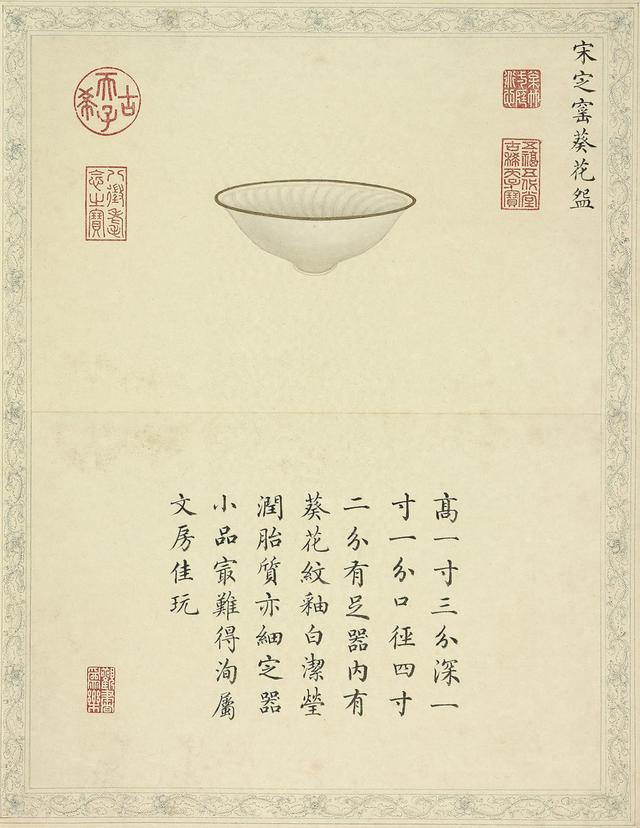 宋㝎窰葵花盌
五福五代堂古稀天子寶
古希天子
八徵耄念之寶
髙一寸三分深一
寸一分口徑四寸
二分有足器内有
葵花紋釉白潔瑩
潤胎質亦細㝎器
小品㝡難得洵屬
文房佳玩